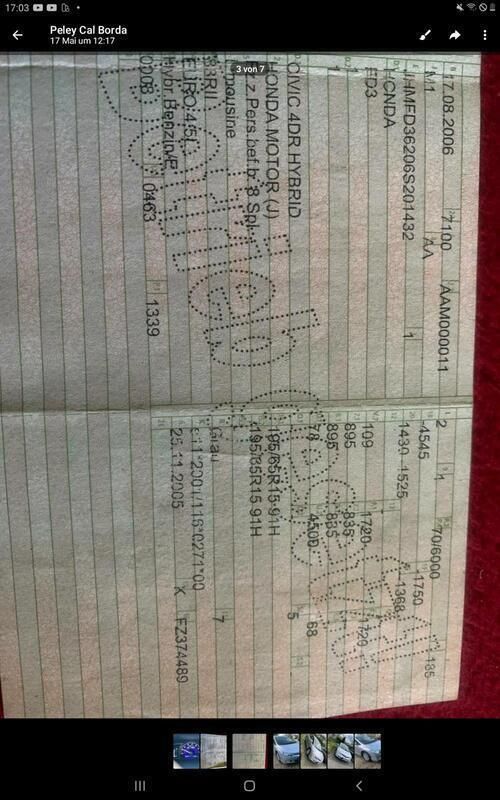 17:03
Peley Cal Borda
17 Mai um 12:17
3 von 7
17.08.2006 7100 AAM000011
M1 AA
JHMFD36206S201432 1
HONDA
FD3
1
CIVIC 4DR HYBRID
HONDA MOTOR (J)
Fz.z.Pers.bef.b. 8 Spl.
Limousine
EURO 4;5L
Hybr.Benzin/E
0008 0463 1339
2 1 70/6000 185
4545 1750
1430-1525 1368
109 1720 1720
895 835
895 835
78 4500 68
5
195/65R15 91H
195/65R15 91H
blau 7
e11*2001/116*0271*00
25.11.2005 K FZ374489